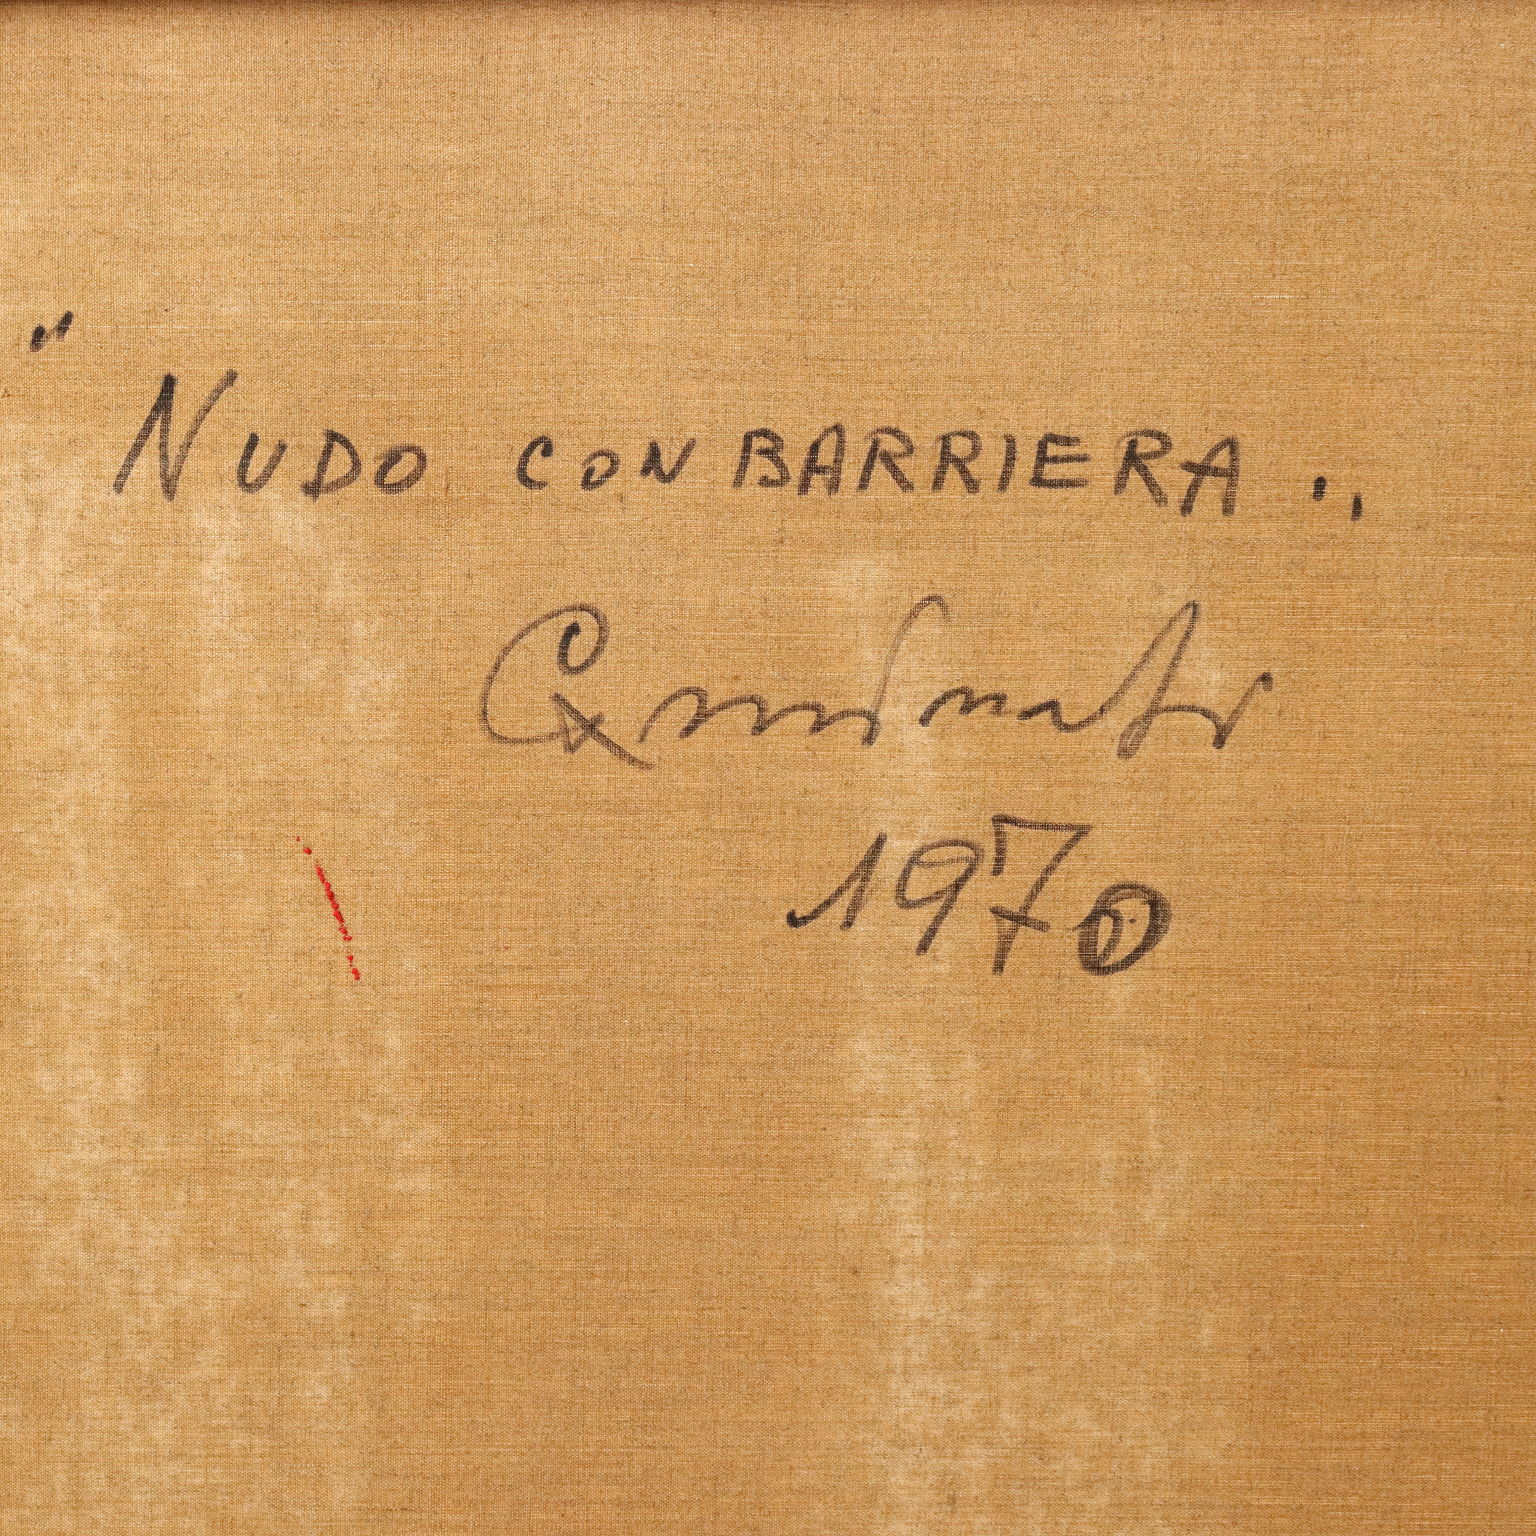 "NUDO CON BARRIERA"
1970